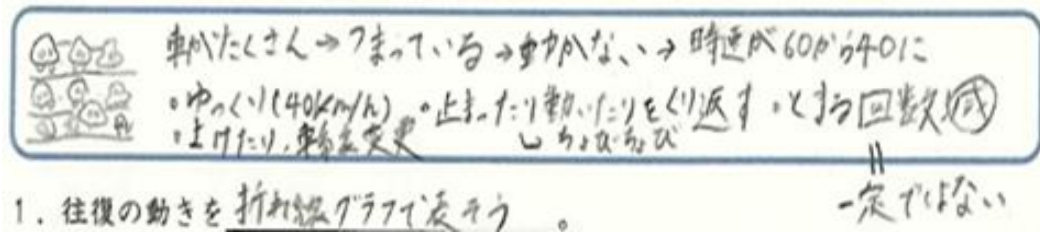 車がたくさん→つまっている→動かない→時速が60から40に
・ゆっくり(40km/h) ・止まったり動いたりをくり返す ・とまる回数減
・よけたり、車線変更 ↳ちょびちょび
=
一定ではない
1. 往復の動きを折れ線グラフで表そう。